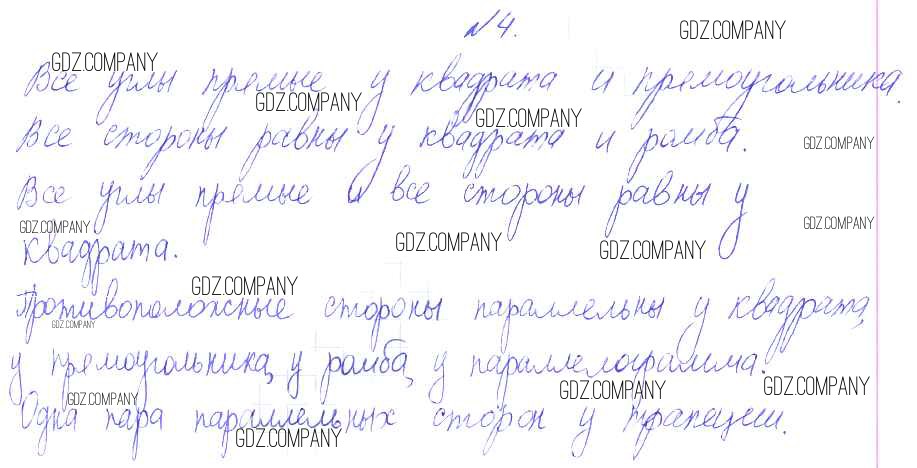 №4.
GDZ.COMPANY
GDZ.COMPANY
Все углы прямые у квадрата и прямоугольника.
GDZ.COMPANY
GDZ.COMPANY
Все стороны равны у квадрата и ромба.
GDZ.COMPANY
Все углы прямые и все стороны равны у
GDZ.COMPANY
GDZ.COMPANY
GDZ.COMPANY
GDZ.COMPANY
квадрата.
GDZ.COMPANY
Противоположные стороны параллельны у квадрата,
GDZ.COMPANY
у прямоугольника, у ромба, у параллелограмма.
GDZ.COMPANY
GDZ.COMPANY
GDZ.COMPANY
Одна пара параллельных сторон у трапеции.
GDZ.COMPANY